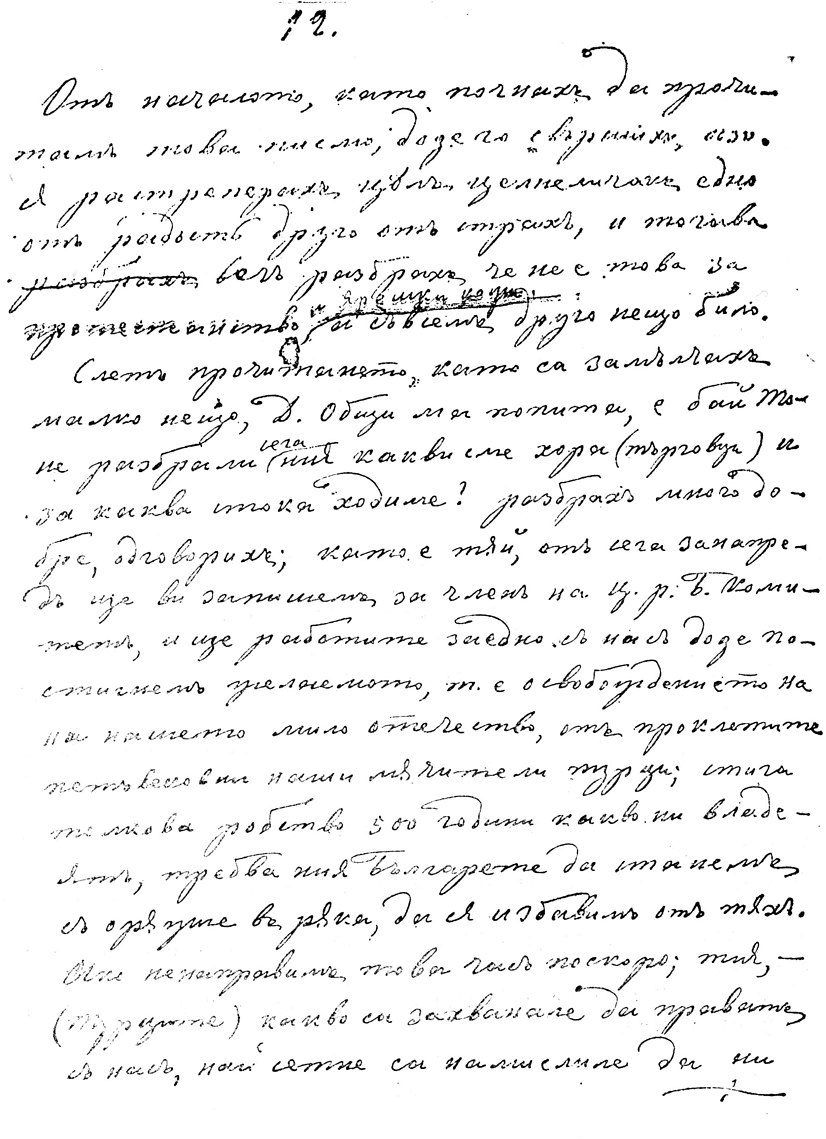 12.
Отъ началото, като почнахъ да прочи-
тамъ това писмо, додего свършихъ, азъ.
ся растреперахъ цѣлъ целниличакъ едно
отъ радость друго отъ страхъ, и тогава
разбрахъ вечъ разбрахъ че не е това за
и ярешки кожи.
протестанство, а съвсемъ друго нещо било.
Слетъ прочитането, като са замълчахъ
малко нещо, Д. Общи ма попита, е бай То-
сега
не разбрали ния какви сме хора (търговци) и
за каква стока ходиме? разбрахъ много до-
бре, одговорихъ; като е тъй, отъ сега занапре-
дъ ще ви запишемъ за членъ на Ц. р. Б. Коми-
тетъ, и ще работите заедно съ насъ доде по-
стигнемъ желаемото, т. е освобождението на
на нашето мило отечество, отъ проклетите
петвековни наши мячители турци; стига
толкова робство 500 години какво ни владе-
ятъ, требва ния Българете да станемъ
съ оряжие въ ряка, да ся избавимъ отъ тяхъ.
Ако ненаправимъ това часъ поскоро; тия,-
(турците) какво са захванале да праватъ
съ насъ, най сетне са намислиле да ни